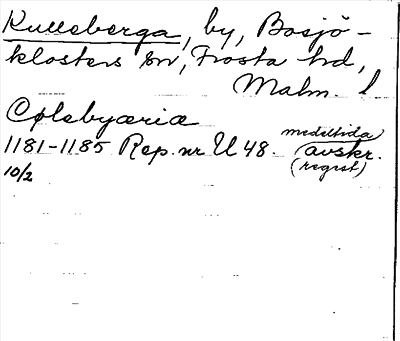 Kulleberga, by, Bosjö-
klosters sn, Frosta hd,
Malm. l.
Cølebyæriæ
1181-1185 Rep. nr U 48. medeltida avskr.
10/2 (regest)